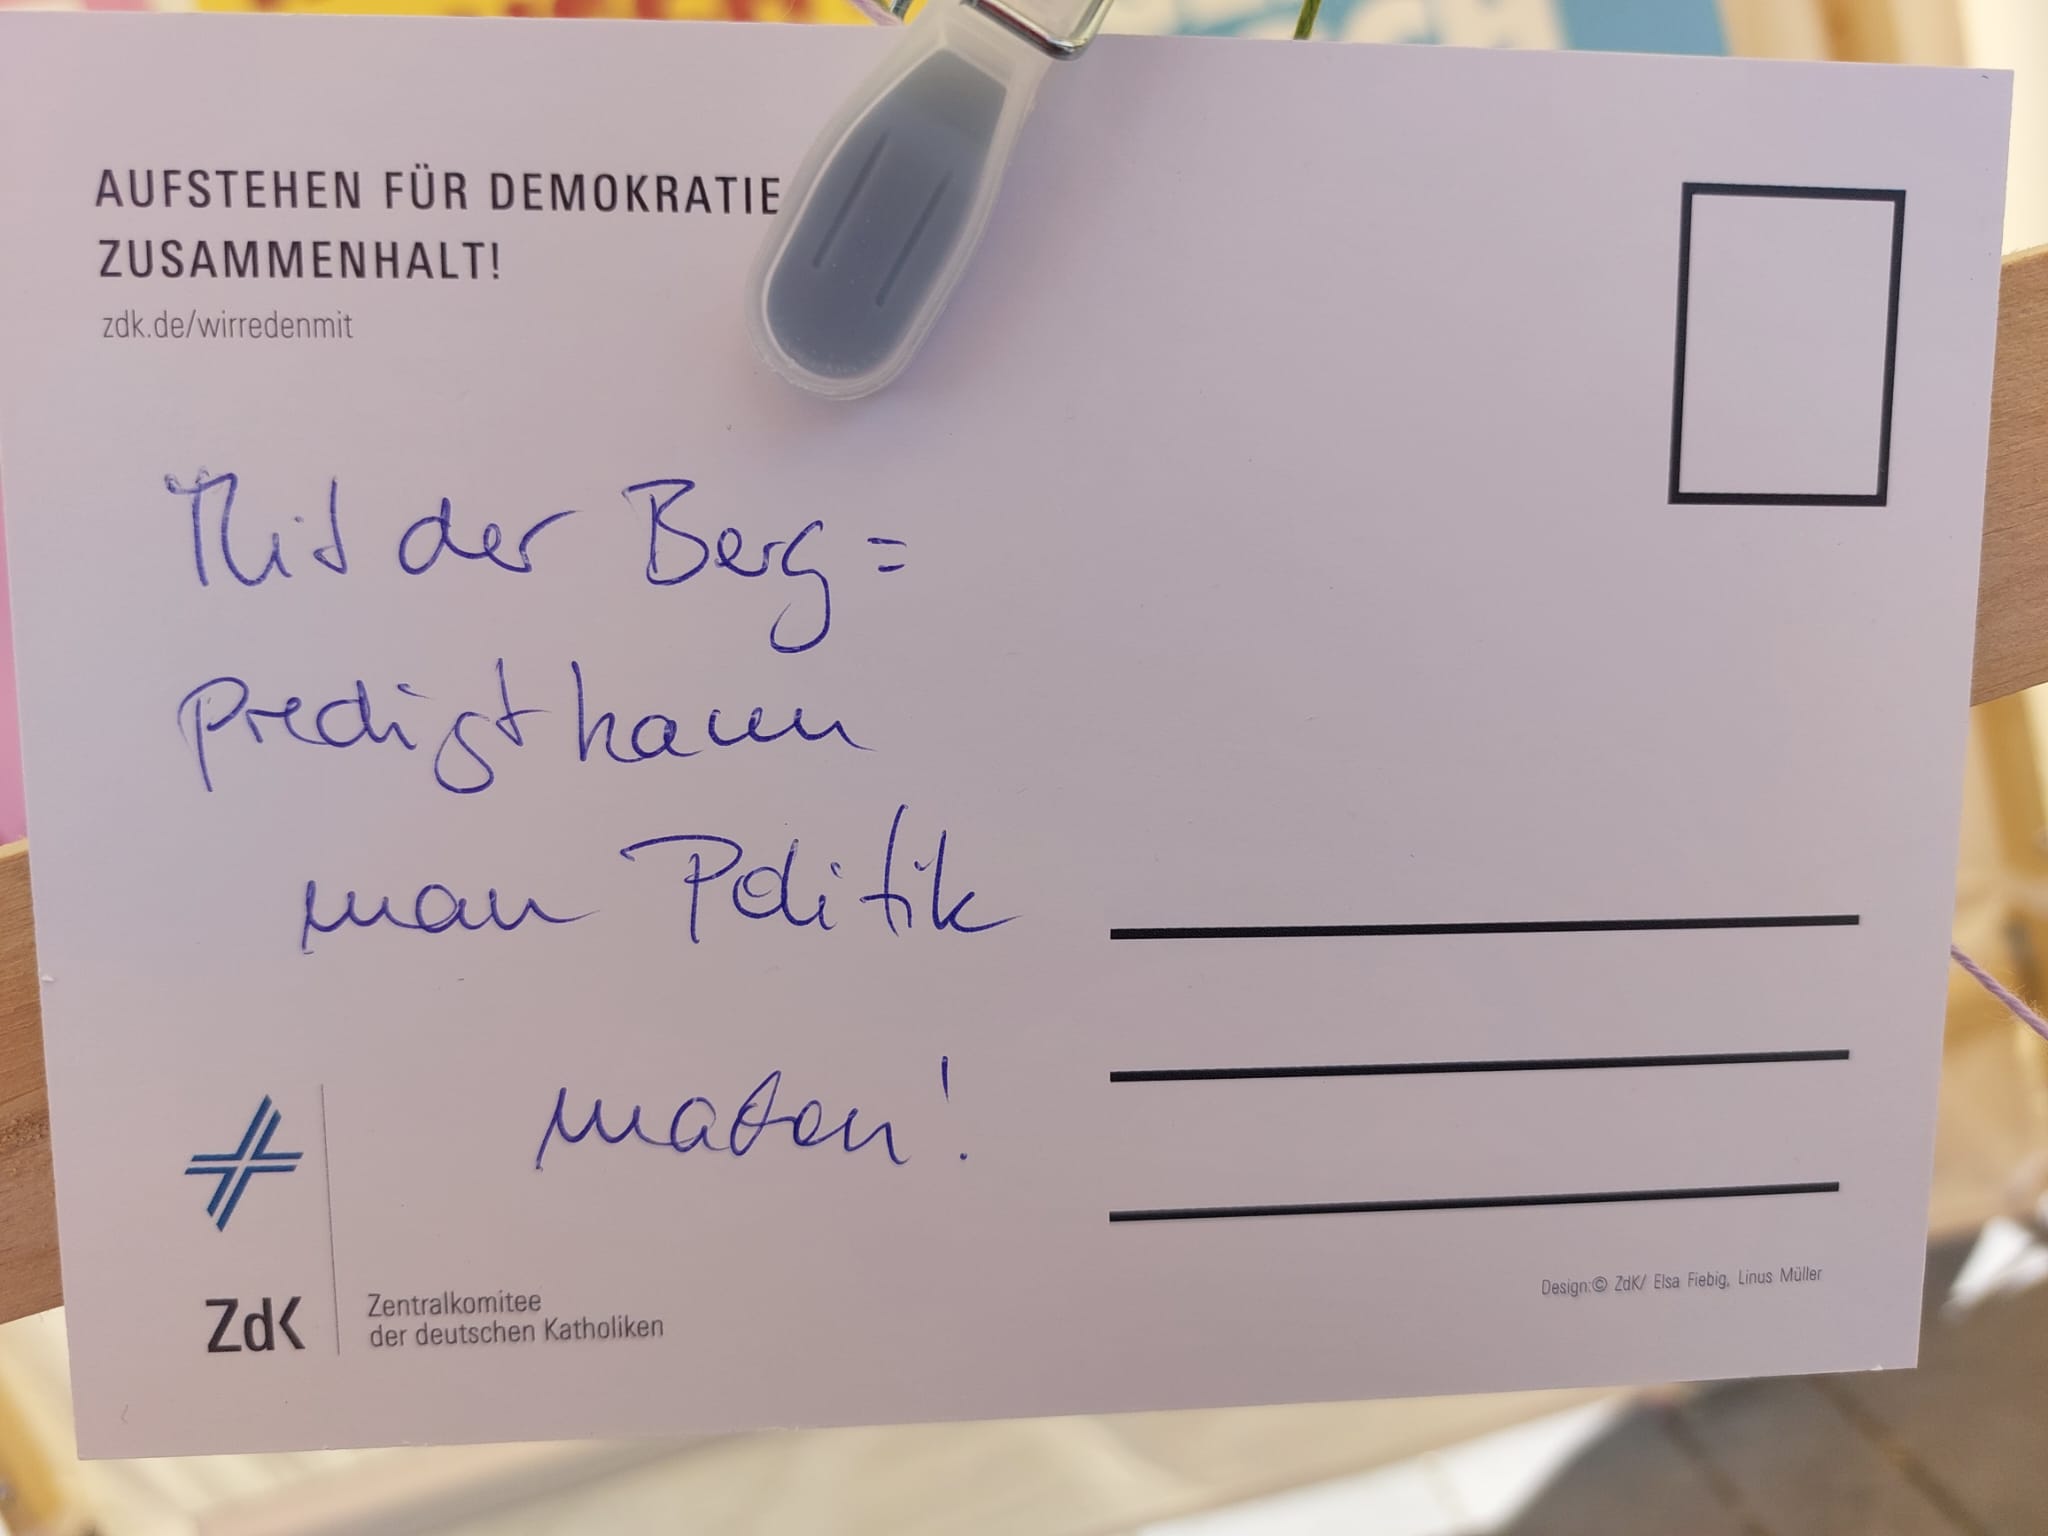 AUFSTEHEN FÜR DEMOKRATIE
ZUSAMMENHALT!
zdk.de/wirredenmit
Mit der Berg=
predigt kann
man Politik
machen!
ZdK
Zentralkomitee
der deutschen Katholiken
Design:© ZdK/ Elsa Fiebig, Linus Müller